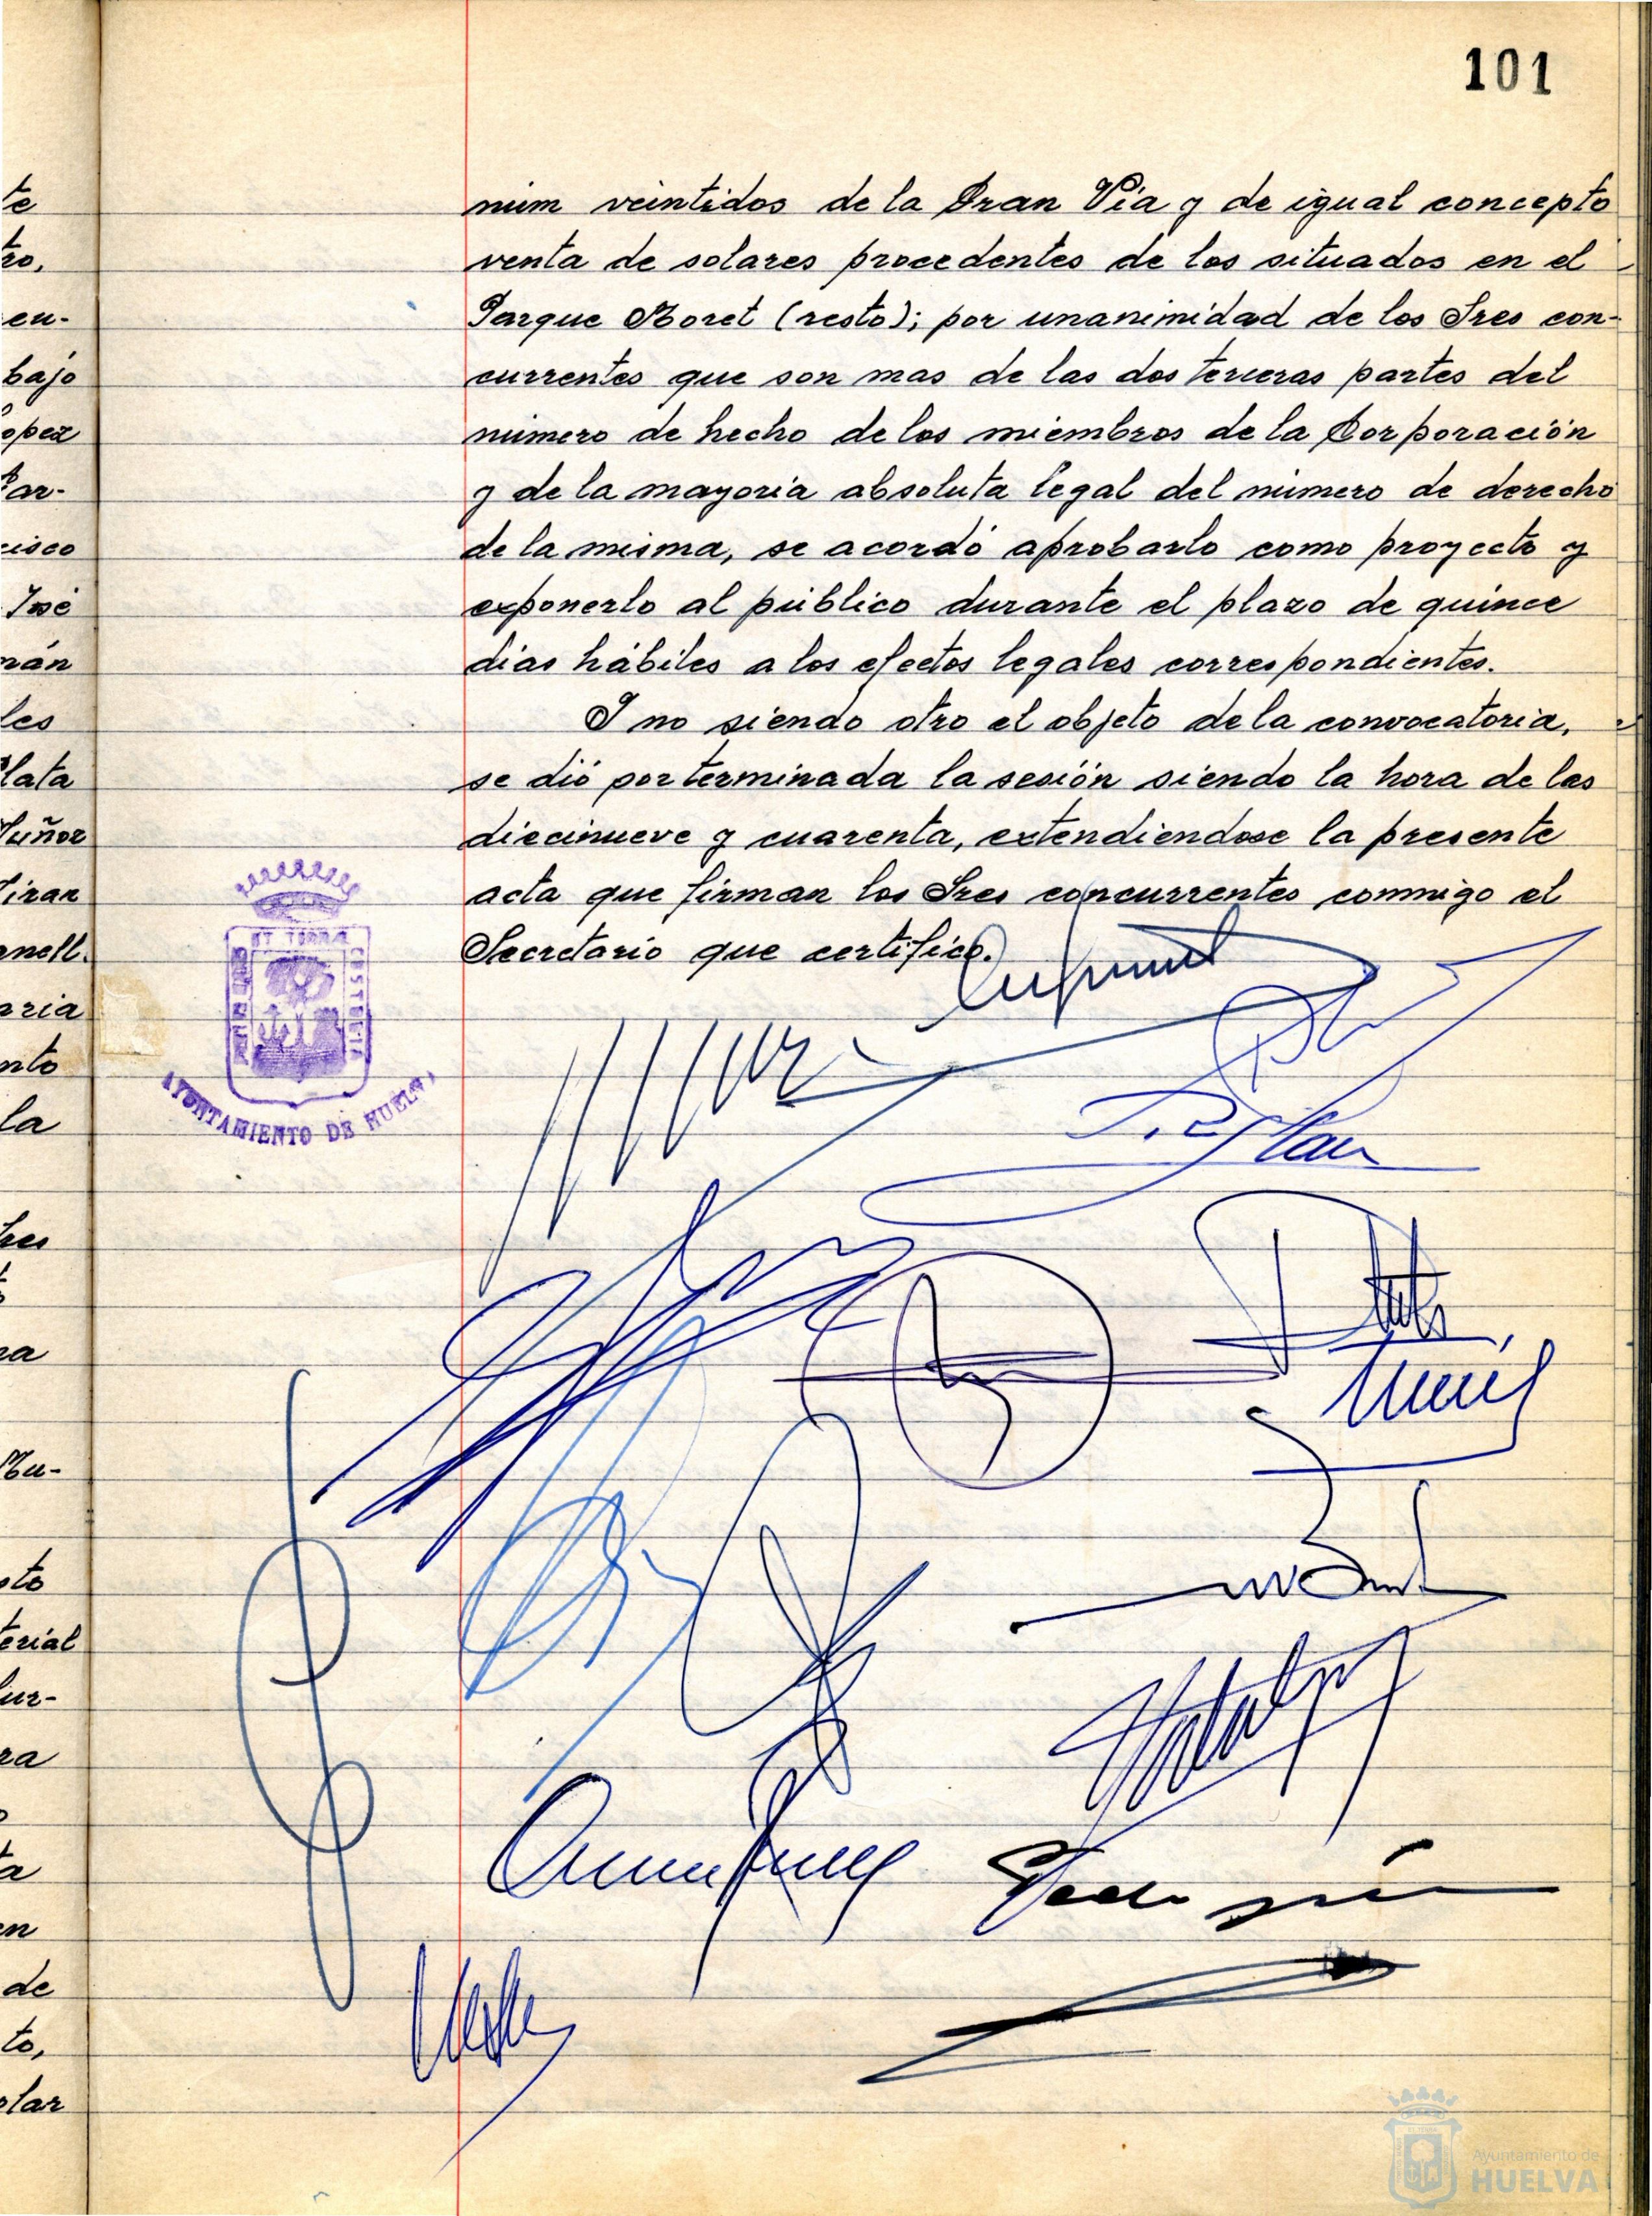 101
te
núm veintidos de la Gran Vía y de igual concepto
ro,
venta de solares procedentes de los situados en el
en-
Parque Moret (resto); por unanimidad de los Sres con-
bajo
currentes que son mas de las dos terceras partes del
opez
número de hecho de los miembros de la Corporación
Gar-
y de la mayoría absoluta legal del número de derecho
cisco
de la misma, se acordó aprobarlo como proyecto y
José
exponerlo al público durante el plazo de quince
mán
días hábiles a los efectos legales correspondientes.
les
Y no siendo otro el objeto de la convocatoria,
lata
se dió por terminada la sesión siendo la hora de las
uñoz
diecinueve y cuarenta, extendiendose la presente
iran
acta que firman los Sres concurrentes conmigo el
nell.
Secretario que certifico.
aria
nto
la
AYUNTAMIENTO DE HUELVA
ra
Mu-
sto
terial
ur-
ra
ta
en
de
to,
olar
Ayuntamiento de
HUELVA